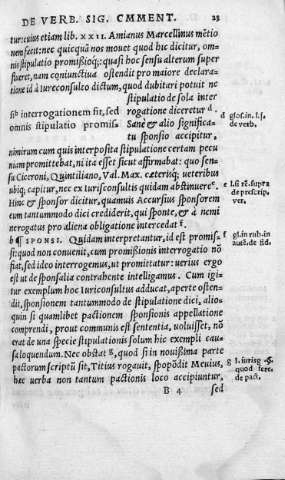 DE VERB. SIG. CMMENT. 23
tur: cuius etiam lib. XXII. Amianus Marcellinus mētio
nem fecit: nec quicquā nos mouet quod hic dicitur, om-
nis stipulatio promißioq́;: quasi hoc sensu alterum super
fluret, nam cōiunctiua ostendit pro maiore declara-
tione id à iureconsulto dictum, quod dubitari potuit ne
stipulatio de sola inter
sib interrogationem fit, sed rogatione diceretur d
omnis stipulatio promiß. Sanè & alio significa-
tu sponsio accipitur,
d glos. in l. 5.
de verb.
nimirum cum quis interposita stipulatione certam pecu
niam promittebat, ni ita esset sicut affirmabat: quo sen-
su Ciceroni, Quintiliano, Val. Max. cæterisq́; veteribus
ubiq; capitur, nec ex iurisconsultis quidam abstinuere e.
Hinc & sponsor dicitur, quamuis Accursius sponsorem
eum tantummodo dici crediderit, qui sponte, & à nemi
ne rogatus pro aliena obligatione intercedat f.
de prescrip.
ver.
b ¶ SPONSI. Quidam interpretantur, id est promis-
si: quod non conuenit, cum promißionis interrogatio nō
fiat, sed ideo interrogemus, ut promittatur: uerius ergo
est ut de sponsalia contrahente intelligamus. Cum igi-
f gl. in rub. in
tur exemplum hoc iurisconsultus adducat, aperte osten-
dit, sponsionem tantummodo de stipulatione dici, alio-
quin si quamlibet pactionem sponsionis appellatione
comprendi, prout communis est sententia, uoluisset, nō
erat de una specie stipulationis solum hic exempli cau-
sa loquendum. Nec obstat g, quod si in nouißima parte
pactorum scriptū sit, Titius rogauit, spopōdit Meuius,
hæc uerba non tantum pactionis loco accipiuntur,
g l. iurisg. §.
quod fere.
de pact.
B 4 sed